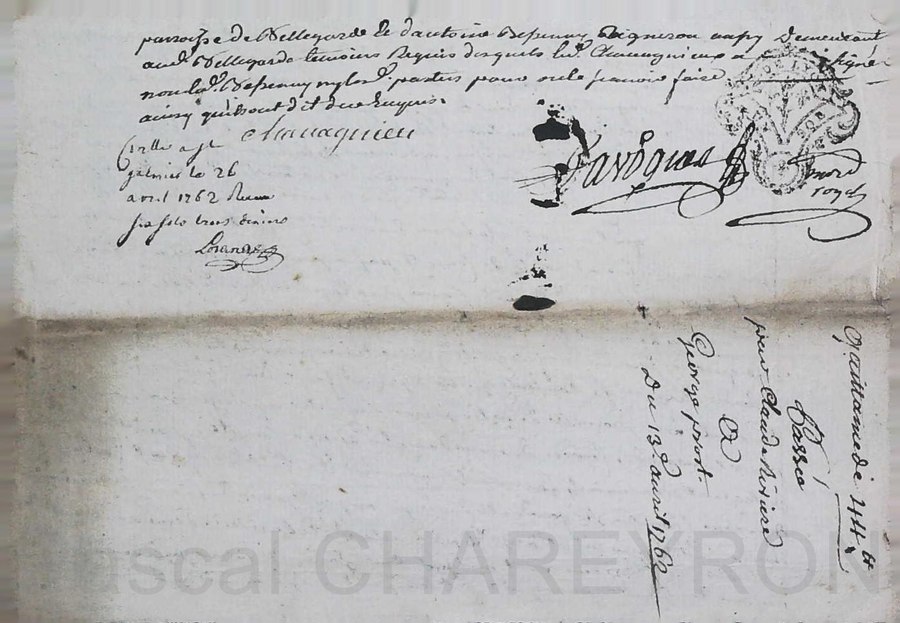 parroisse de Bellegarde et d'antoine Depenay Vigneron aussy Demeurant
aud. Bellegarde temoins Requis desquels led. Chavagnieux a signé
non led. Depenay ny lesd. parties pour ne le sçavoir faire
ainsy qu'ils ont dit de ce Enquis.
chavagnieu
Conllé a St
galmier le 26
avril 1762 Reçu
six sols trois deniers
Javogues
nore
royal
Quittance de 44tt
Passée
pour Claude Riviere
A
George priort.
Du 13e. avril 1762
Pascal CHAREYRON